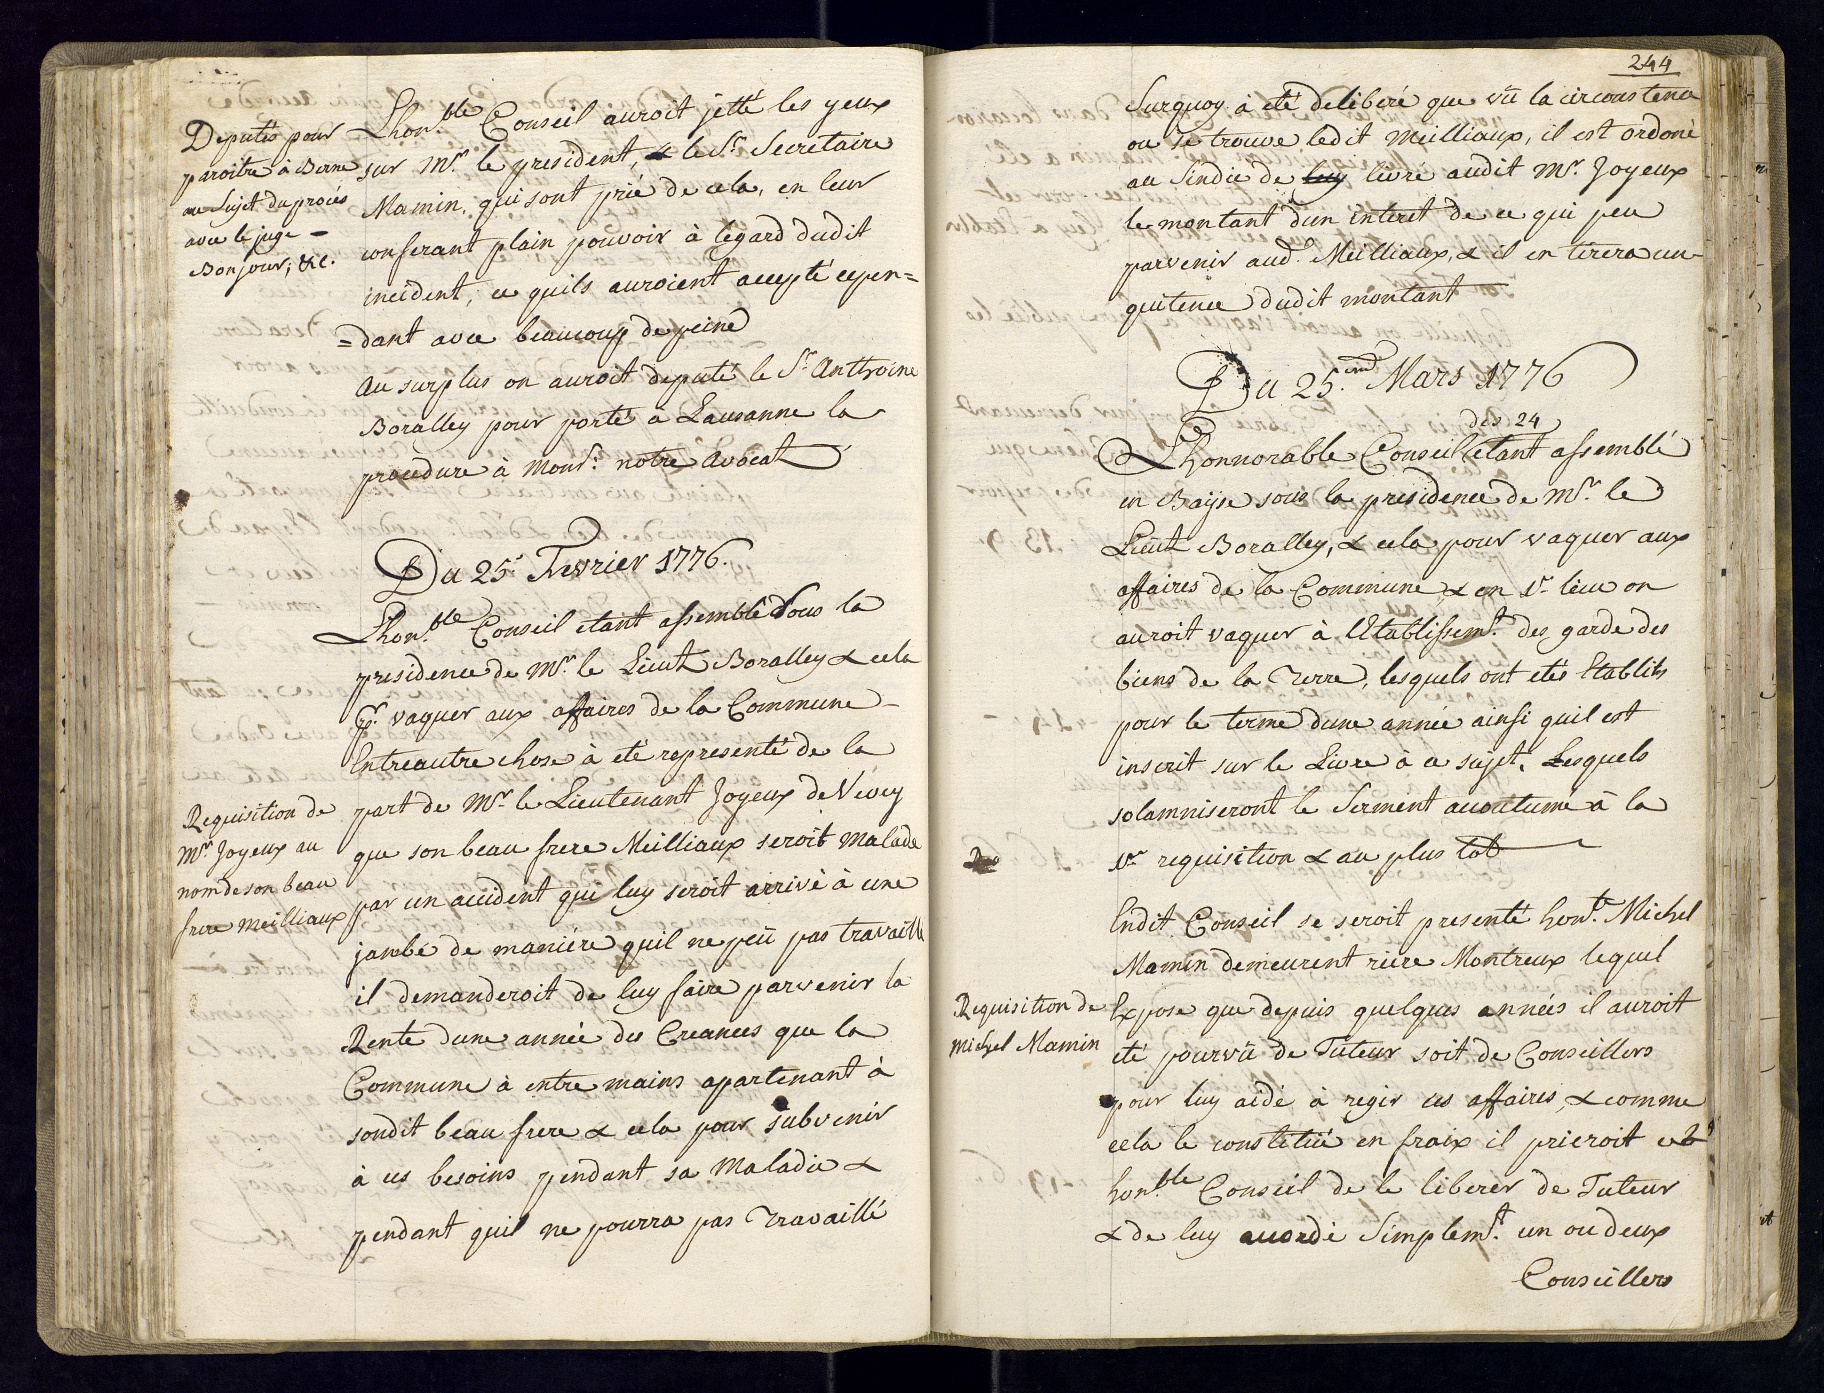 Deputés pour
paroitre à Berne
au Sujet du procés
avec le juge
Bonjour; &c.
Lhon.ble Conseil auroit jetté les yeux
sur Mr. le president, & le Sr. Secretaire
Mamin, qui sont prié de cela, en leur
conferant plain pouvoir à legard dudit
incident, ce quils auroient accepté cepen=
=dant avec beaucoup de peine
Au surplus on auroit deputé le Sr. Anthoine
Boralley pour porté à Lausanne la
procedure à Monsr. notre Avocat
Du 25e. Fevrier 1776.
Lhon.ble Conseil etant assemblé Sous la
presidence de Mr. le Lieut Boralley & cela
pr. vaquer aux affaires de la Commune
Entreautre chose à eté representé de la
Requisition de
Mr. Joyeux au
nom de son beau
frere Meilliaux
part de Mr. le Lieutenant Joyeux de Vevey
que son beau frere Meilliaux seroit malade
par un accident qui luy seroit arrivé à une
jambe de maniére quil ne peü pas travaillé
il demanderoit de luy faire parvenir la
Rente dune année des Creances que la
Commune à entre mains apartenant à
sondit beau frere & cela pour subvenir
à ces besoins pendant sa Maladie &
pendant quil ne pourra pas Travaillé
244
Surquoy à eté deliberé que vü la circonstence
ou se trouve ledit Meilliaux, il est ordoné
au Sindic de luy livré audit Mr. Joyeux
le montant dun interet de ce qui peu
parvenir aud. Meilliaux, & il en tirera un
quitence dudit montant
Du 25.me Mars 1776
des 24
Lhonnorable Conseil etant assemblé
en Bayse sous la presidence de Mr. le
Lieüt Boralley, & cela pour vaquer aux
affaires de la Commune, & en 1r. lieu on
auroit vaquer à l'Etablissemt. des garde des
biens de la Terre, lesquels ont etés Etablits
pour le terme dune année ainsi quil est
inscrit sur le Livre à ce sujet. Lesquels
solamniseront le Serment acoutumé à la
1re requisition & au plus tot
Endit Conseil se seroit presenté hont. Michel
Mamin demeurent riére Montreux lequel
Requisition de
Michel Mamin
Expose que depuis quelques années il auroit
eté pourvü de Tuteur soit de Conseillers
pour luy aidé à regir ces affaires, & comme
cela le constetüe en fraix il prieroit cet
hon.ble Conseil de le liberer de Tuteur
& de luy accordé Simplemt. un ou deux
Conseillers